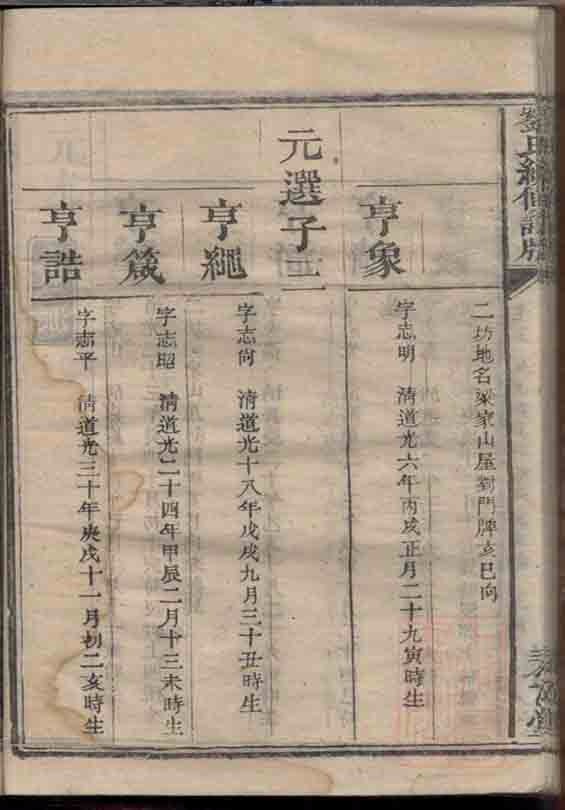 氏續修譜
二坊地名梁家山屋對門牌亥巳向
亨象
字志明 清道光六年丙戌正月二十九寅時生
元選子三
亨繩
字志尙 清道光十八年戊戌九月三十丑時生
亨箴
字志昭 清道光二十四年甲辰二月十三未時生
亨誥
字志平 清道光三十年庚戌十一月初二亥時生